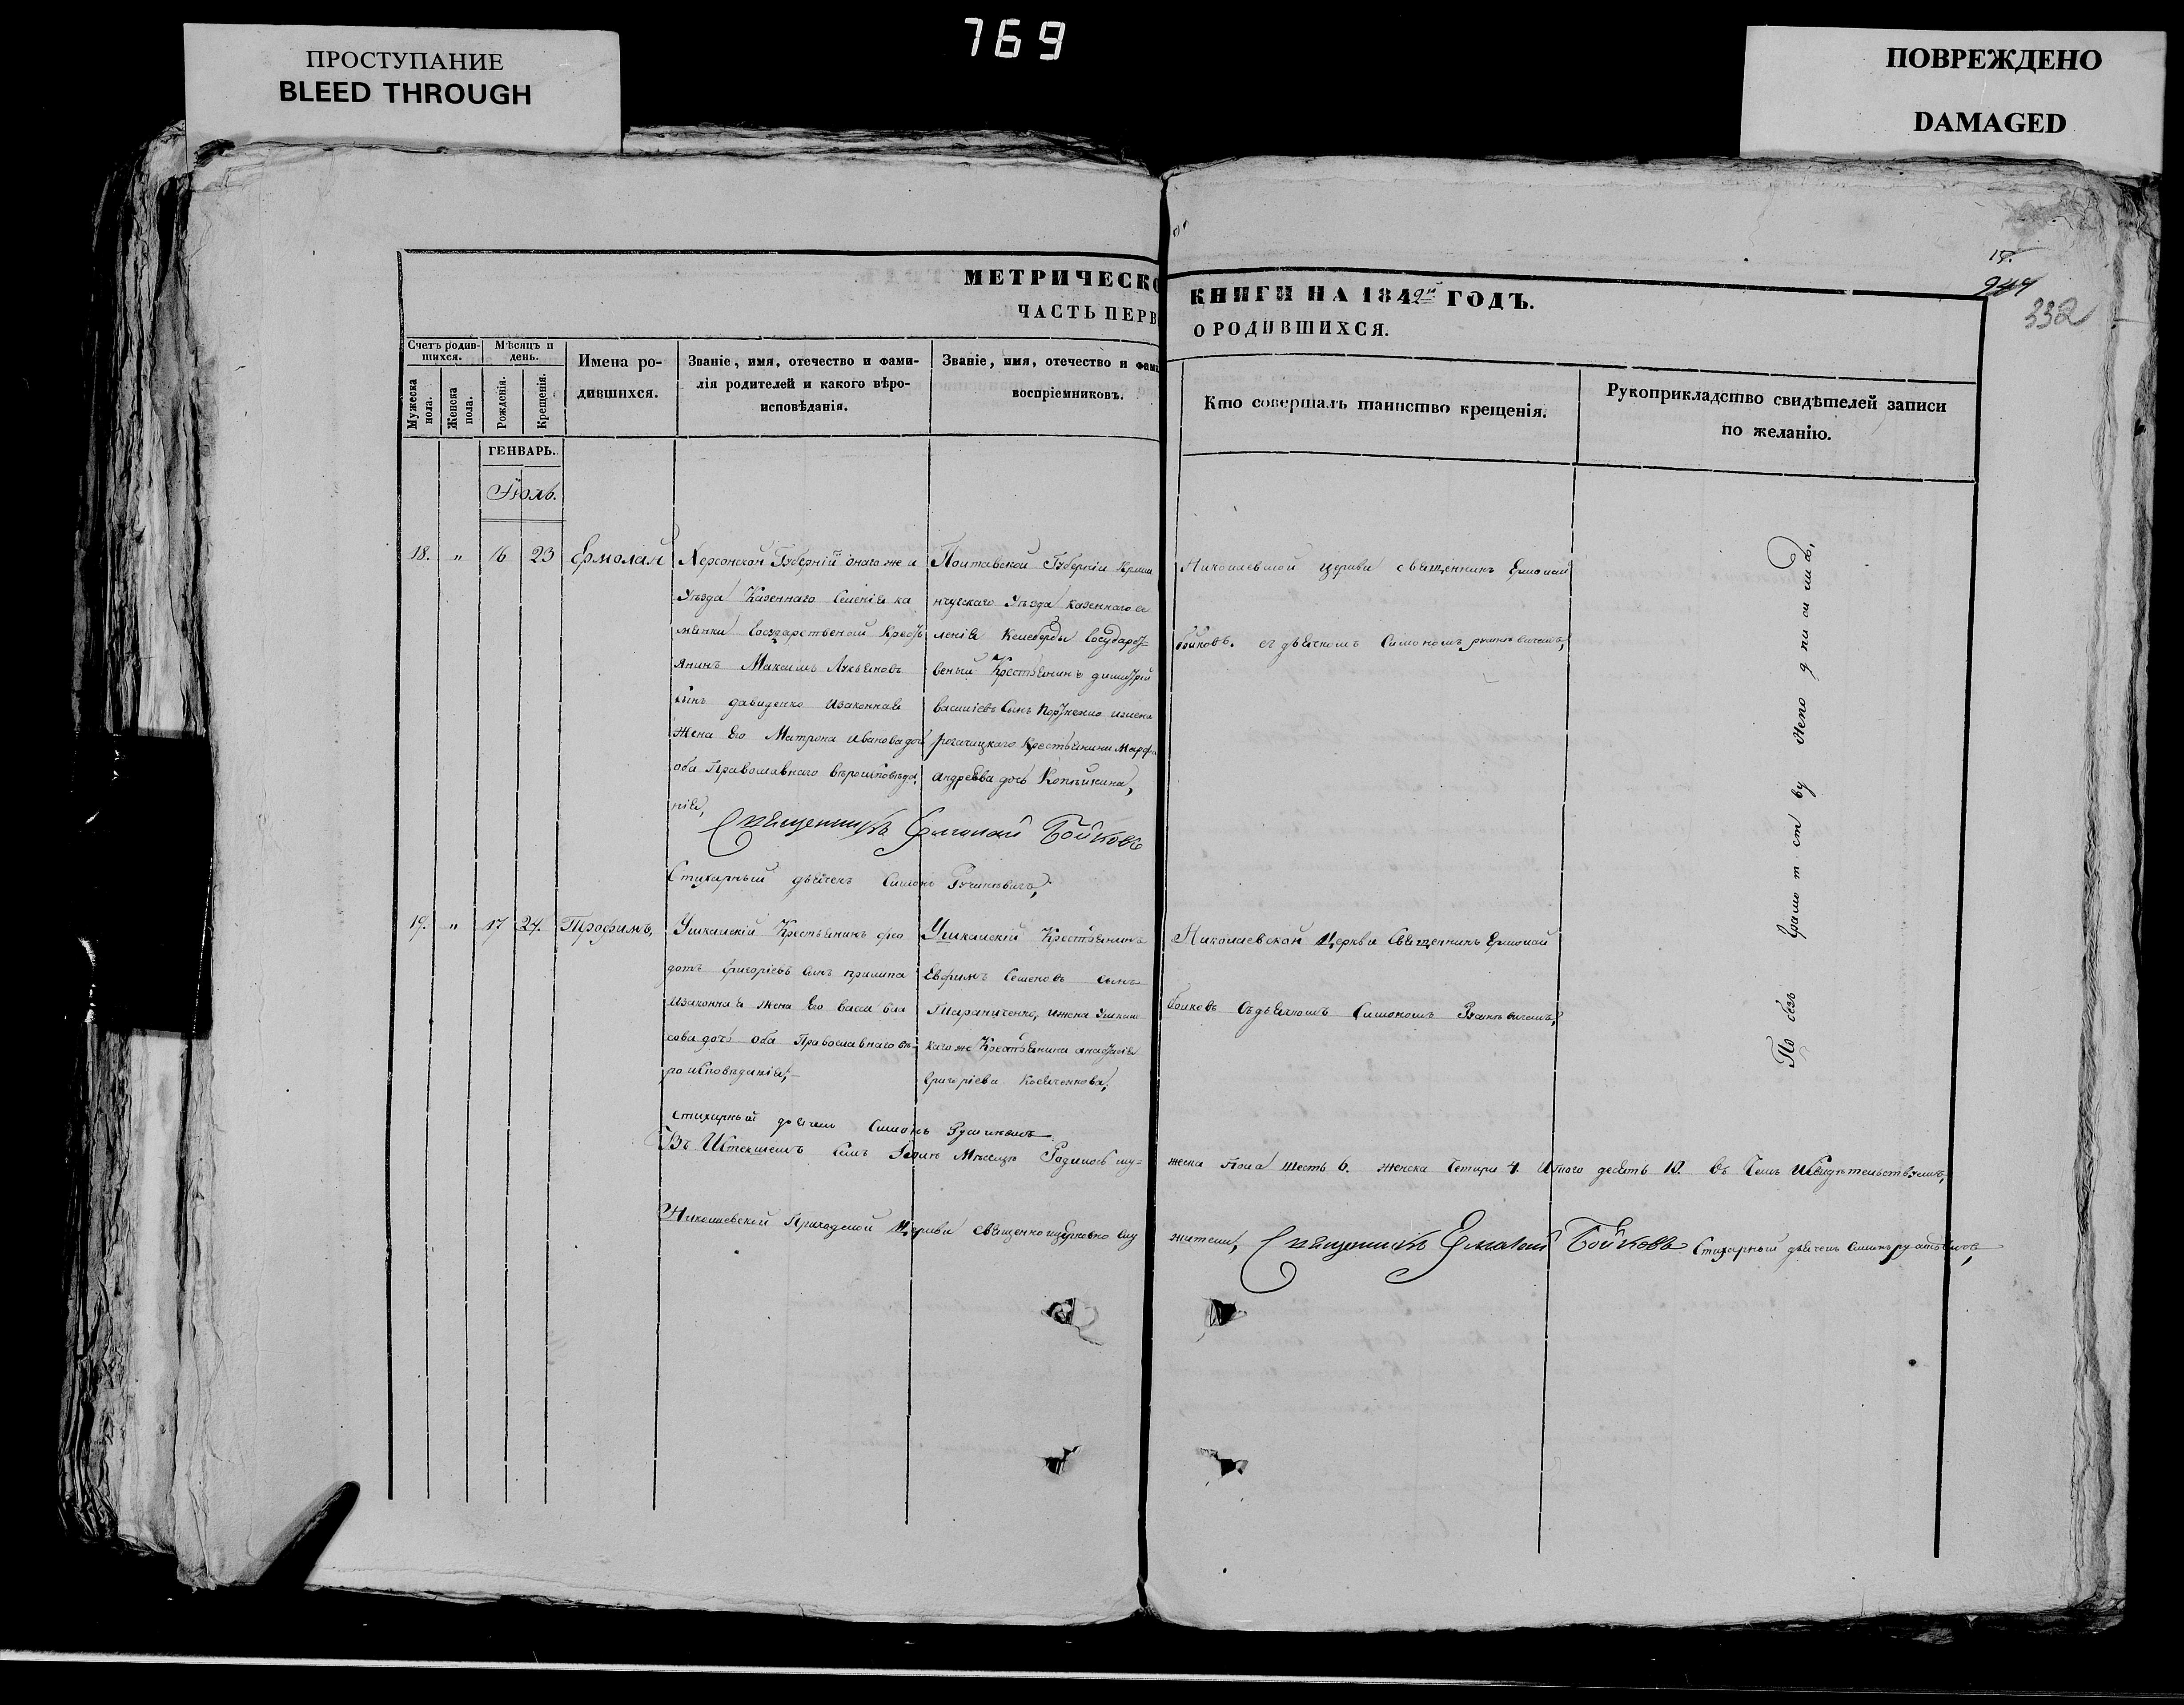 ПРОСТУПАНИЕ
BLEED THROUGH
769
ПОВРЕЖДЕНО
DAMAGED
15.
944
332
МЕТРИЧЕСКО
КНИГИ НА 1849й ГОДЪ.
ЧАСТЬ ПЕРВ
О РОДИВШИХСЯ.
Счетъ родив-
шихся.
Мужеска
пола.
Женска
пола.
Мѣсяцъ и
день.
Рожденія.
Крещенія.
Имена ро-
дившихся.
Званіе, имя, отечество и фами-
лія родителей и какого вѣро-
исповѣданія.
Званіе, имя, отечество и фами
воспріемниковъ.
Кто совершалъ таинство крещенія.
Рукоприкладство свидѣтелей записи
по желанію.
ГЕНВАРЬ.
Іюль.
18. " 16 23 Ермолай
Херсонской Губерніи онаго же и
Уѣзда Казеннаго Селенія Ка
менки Государственой Кресть
янинъ Максимъ Лукьяновъ
сынъ давиденко изаконная
Жена Его Матрона Иванова доч
оба Православнаго вѣроисповѣда,
нія,
Полтавской Губерніи Креме
нчугскаго Уѣзда казеннаго се
ленія Келеберды Государст
веный Крестьянинъ димитрій
василіевъ Сынъ
рогачицкаго Крестьянини Марфа
андреева дочь Копѣйкина,
Николаевской церкви священникъ Ермолай
бойковъ. съ дьячкомъ Симономъ
Священникъ Ермолай Бойковъ
Стихарный дьячекъ Симонъ
19. " 17 24. Трофимъ,
Ушкалскій Крестьянинъ фео
дотъ Григоріевъ Сынъ
изаконная Жена Его
сова дочь оба Православнаго вѣ-
роисповѣданія,
Ушкалскій Крестьянинъ
Евфимъ Семеновъ сынъ
Тараниченко, ижена Ушкал
скагоже Крестьянина анастасія
Григоріева
Николаевской Церкви Священникъ Ермолай
бойковъ Съдьячкомъ Симономъ
стихарный дьячекъ Симонъ
Въ Истекшемъ Семъ Іюлѣ Мѣсяцѣ Родилось му-
жеска пола шесть 6. женска Четыри 4. Итого десять 10. въ Чемъ Исвидѣтельствуемъ,
Николаевской Приходской Церкви Священноицерковно слу
жители, Священникъ Ермолай Бойковъ Стихарный дьячекъ
По безъ грамотству Неподписалъ.